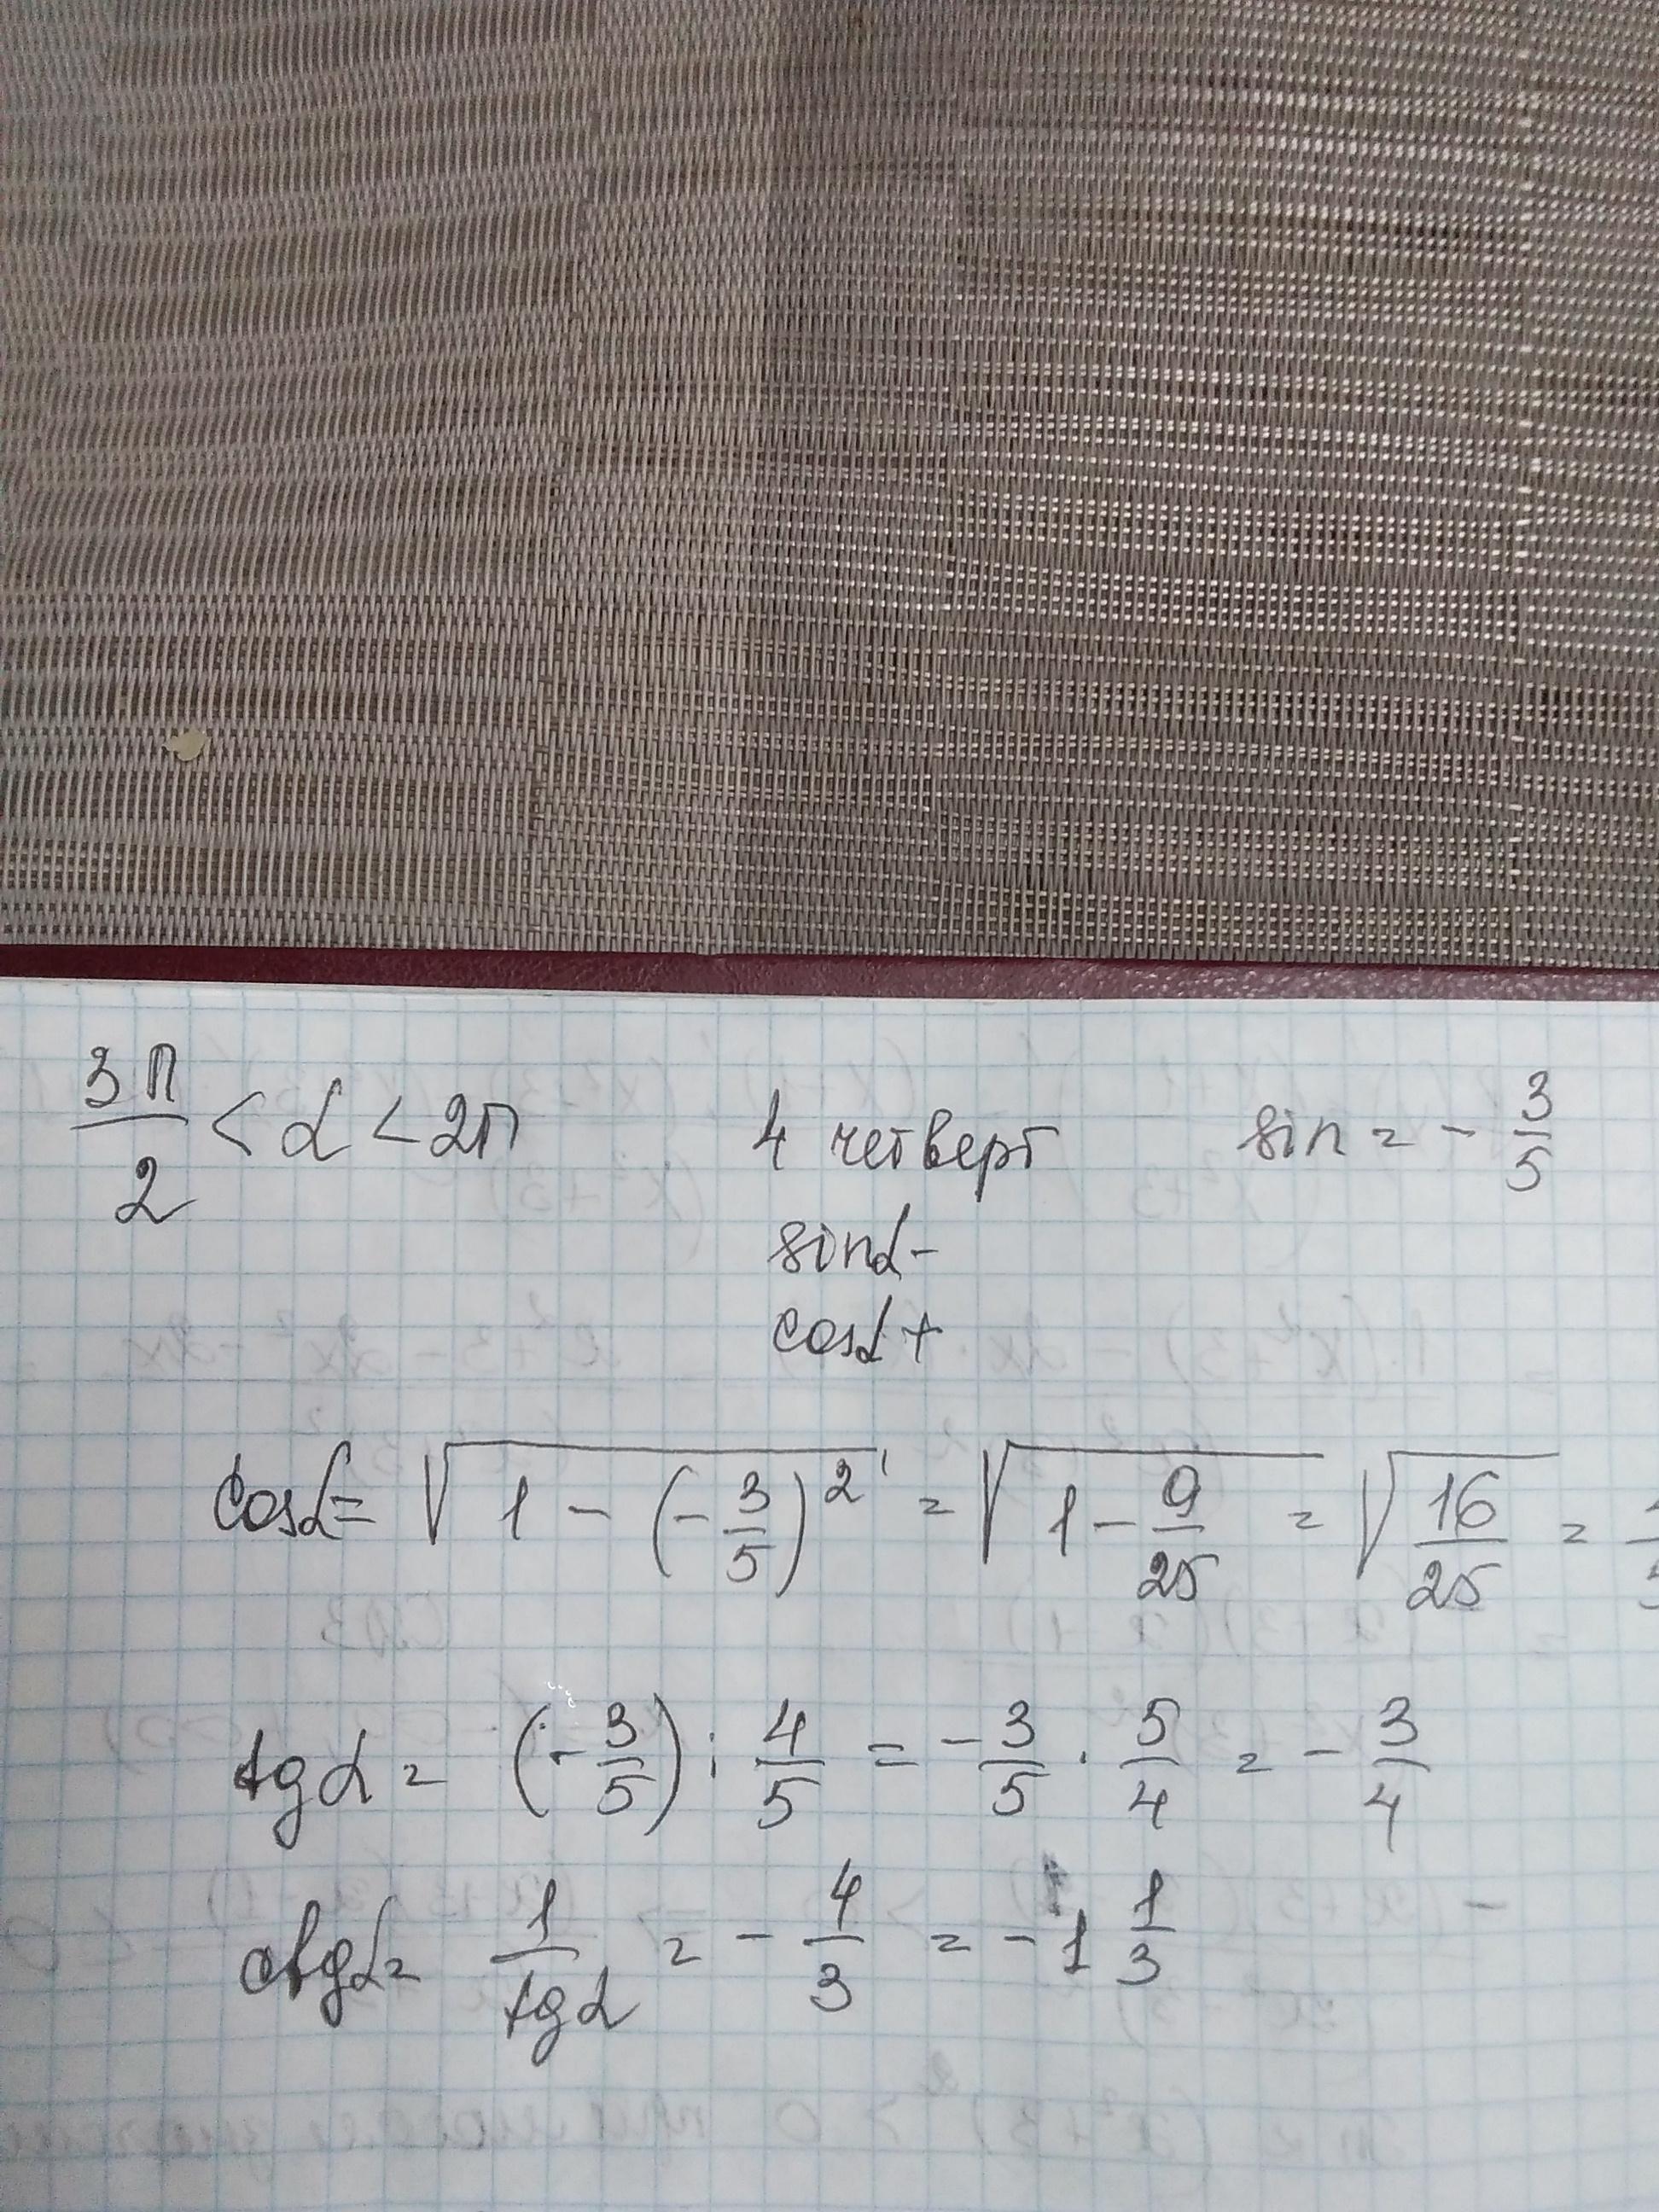 3π/2 < α < 2π 4 четверт sin = - 3/5
sinα -
cosα +
cosα = √(1 - (-3/5)²) = √(1 - 9/25) = √(16/25) =
tgα = (-3/5) : 4/5 = -3/5 · 5/4 = - 3/4
ctgα = 1/tgα = - 4/3 = - 1 1/3